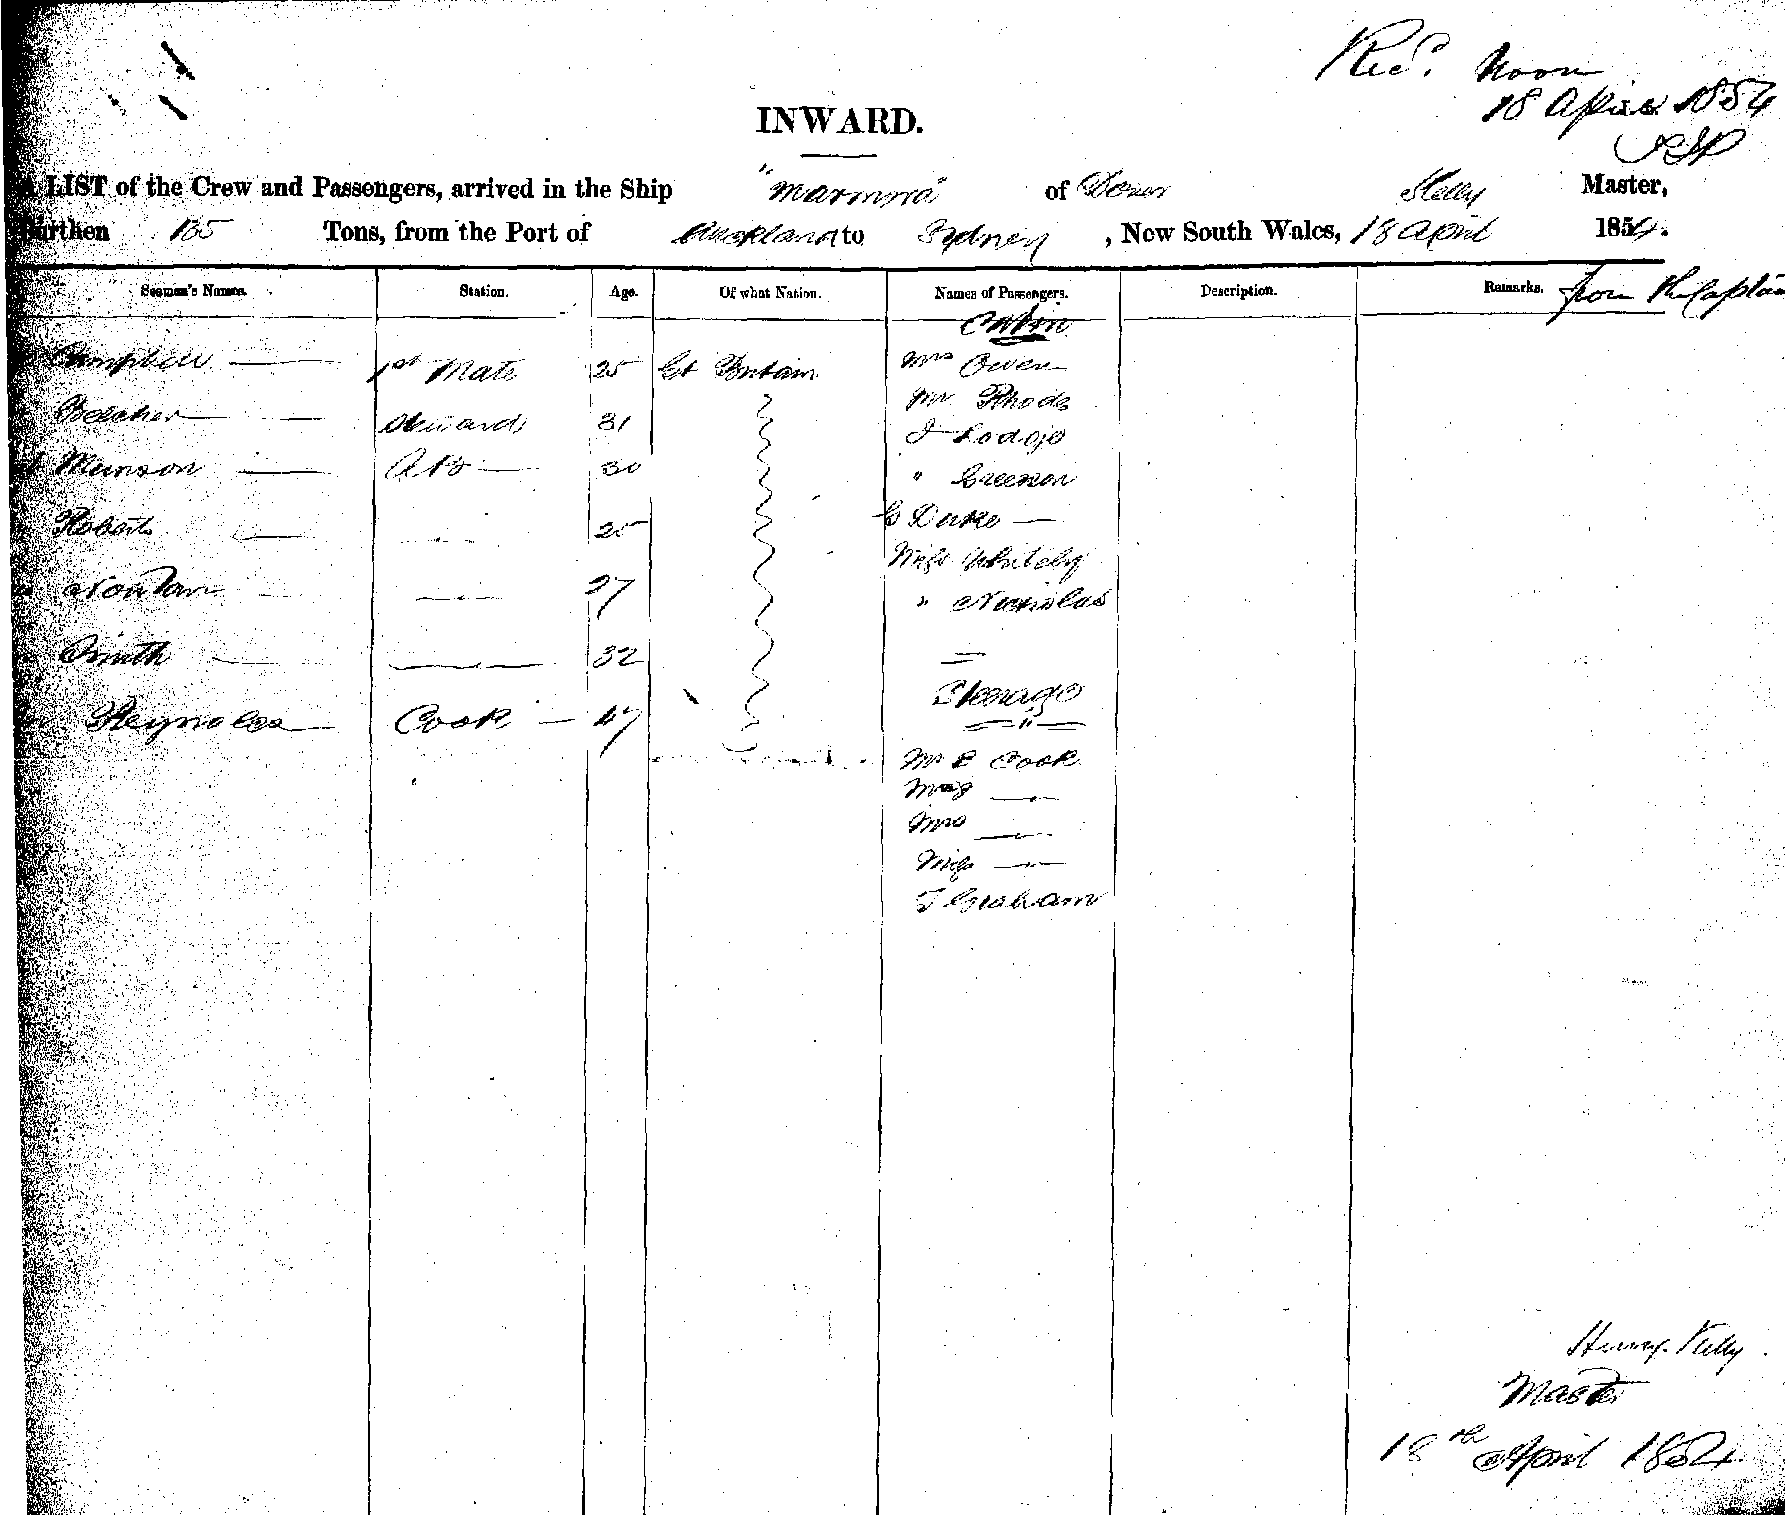 Recd. Noon
18 April 1854
INWARD.
A LIST of the Crew and Passengers, arrived in the Ship "Marmora" of Dover Kelly Master,
Burthen 135 Tons, from the Port of Auckland to Sydney, New South Wales, 18 April 1854.
Seamen's Names. Station. Age. Of what Nation. Names of Passengers. Description. Remarks. from the Captain
Cabin
Campbell 1st Mate 25 Gt Britain Mrs Owen
Mr Rhodes
Belcher Steward 31
J Lodge
Munson AB 30 " Greenon
Roberts 25 G Duke
Miss Whitely
27 " Nicholas
Smith 32
Steerage
Reynolds Cook 47
Mr E Cook
Mrs
Miss
T Graham
Henry Kelly
Master
18th April 1854